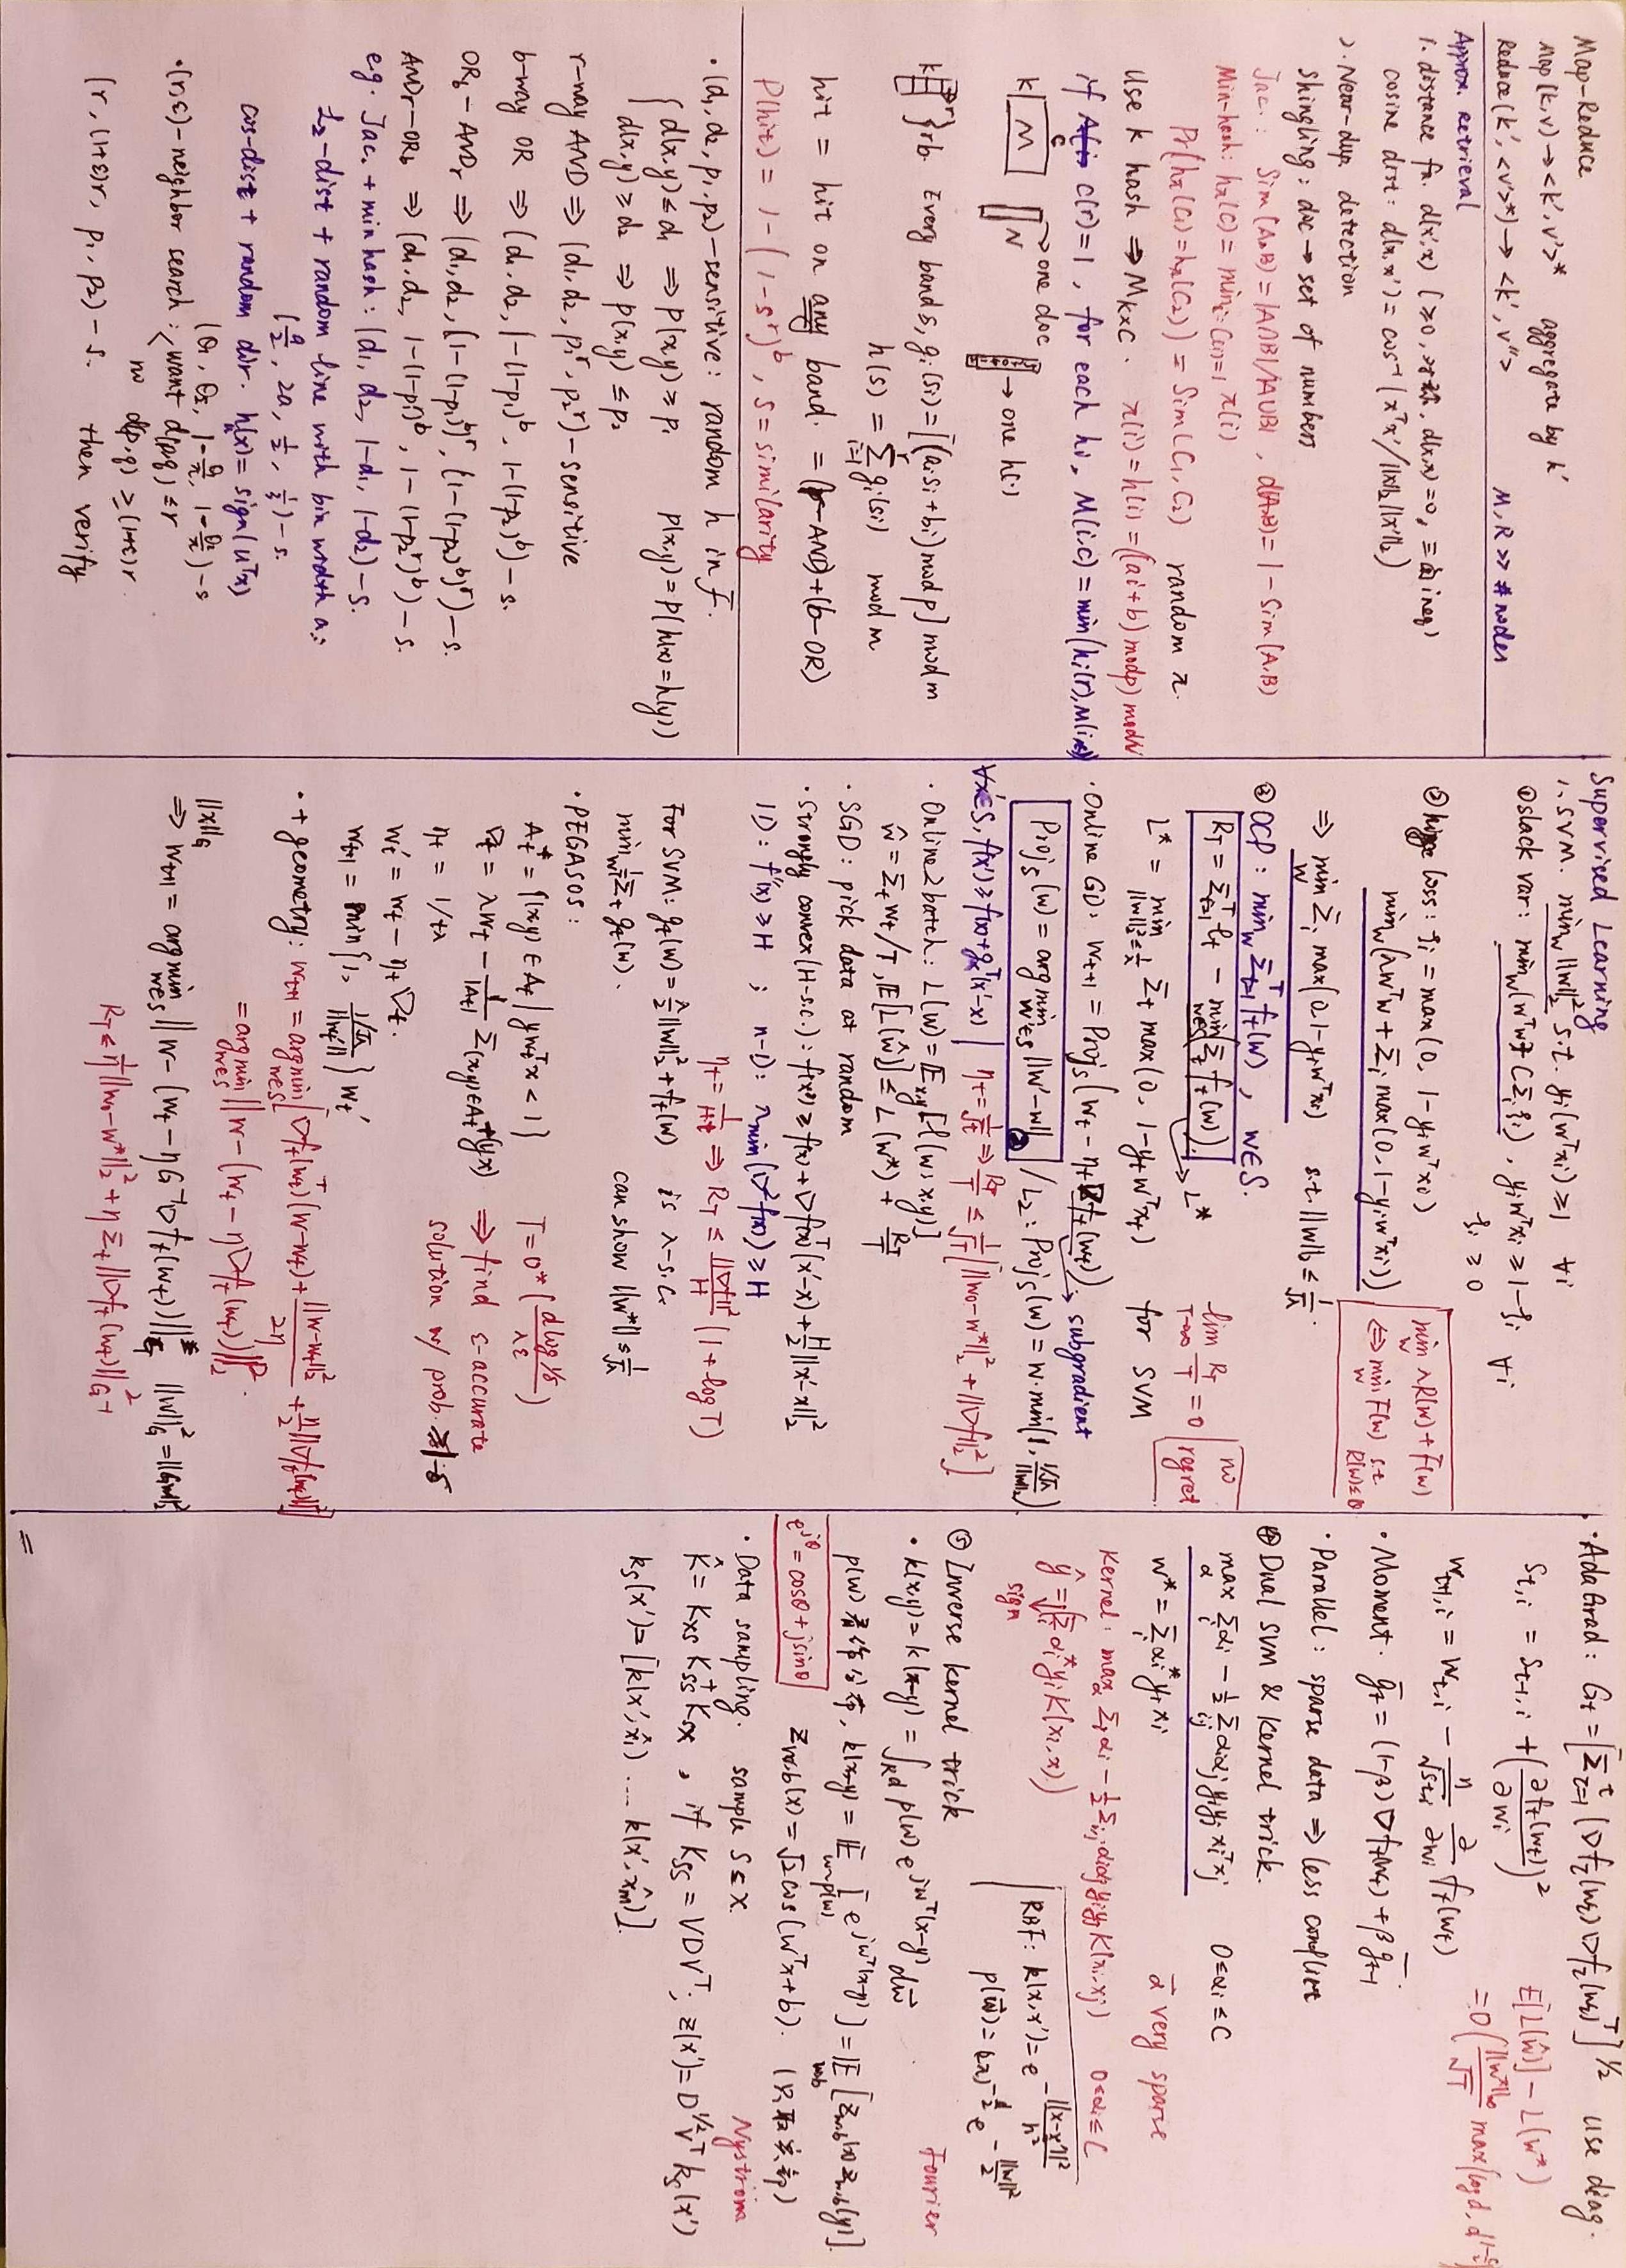 Map-Reduce
Map(k,v) → <k',v'>* aggregate by k'
Reduce(k',<v'>*) → <k',v''> M,R >> #nodes
Approx. retrieval
1. distance fn. d(x',x) (≥0, d(x,x)=0, ineq)
cosine dist: d(x,x') = cos⁻¹(xᵀx'/||x||₂||x'||₂)
2. Near-dup. detection
shingling: doc → set of numbers
Jac.: Sim(A,B) = |A∩B|/|A∪B|, d(A,B) = 1 - Sim(A,B)
Min-hash: hπ(C) = min_{i:C(i)=1} π(i)
Pr(hπ(C₁) = hπ(C₂)) = Sim(C₁,C₂) random π.
Use k hash ⇒ M_{k×C}. π(i) = h(i) = (ai+b) mod p) mod N
if C(r)=1, for each hᵢ, M(i,c) = min(hᵢ(r), M(i,c))
k M → one doc → one h(·)
C N
k r } rb. Every band s, gᵢ(sᵢ) = [(aᵢsᵢ+bᵢ) mod p] mod m
h(s) = Σᵢ₌₁ʳ gᵢ(sᵢ) mod m
hit = hit on any band. = (r-AND)+(b-OR)
P(hit) = 1-(1-sʳ)ᵇ, s = similarity
· (d₁,d₂,p₁,p₂)-sensitive: random h in F.
{ d(x,y) ≤ d₁ ⇒ p(x,y) ≥ p₁ p(x,y) = p(h(x)=h(y))
d(x,y) ≥ d₂ ⇒ p(x,y) ≤ p₂
r-way AND ⇒ (d₁,d₂,p₁ʳ,p₂ʳ)-sensitive
b-way OR ⇒ (d₁,d₂,1-(1-p₁)ᵇ,1-(1-p₂)ᵇ)-s.
OR_b-AND_r ⇒ (d₁,d₂,(1-(1-p₁)ᵇ)ʳ,(1-(1-p₂)ᵇ)ʳ)-s.
AND_r-OR_b ⇒ (d₁,d₂,1-(1-p₁ʳ)ᵇ,1-(1-p₂ʳ)ᵇ)-s.
eg. Jac. + min hash: (d₁,d₂,1-d₁,1-d₂)-s.
L₂-dist + random line with bin width a:
(a/2, 2a, 1/2, 1/3)-s.
cos-dist + random dir. h(x) = sign(uᵀx)
(θ₁, θ₂, 1-θ₁/π, 1-θ₂/π)-s
· (r,ε)-neighbor search: { want d(p,q) ≤ r
no d(p,q) ≥ (1+ε)r
(r, (1+ε)r, p₁, p₂)-s. then verify
Supervised Learning
1. SVM. min_w ||w||₂² s.t. yᵢ(wᵀxᵢ) ≥ 1 ∀i
① slack var: min_w (wᵀw + CΣᵢξᵢ), yᵢwᵀxᵢ ≥ 1-ξᵢ ∀i
ξᵢ ≥ 0
② hinge loss: ξᵢ = max(0, 1-yᵢwᵀxᵢ)
min_w (λwᵀw + Σᵢ max(0,1-yᵢwᵀxᵢ))
min_w λR(w)+F(w)
⇔ min_w F(w) s.t. R(w)≤B
⇒ min_w Σᵢ max(0,1-yᵢwᵀxᵢ) s.t. ||w||₂ ≤ 1/√λ.
③ OCP: min_w Σₜ₌₁ᵀ fₜ(w), w∈S.
R_T = Σₜ₌₁ᵀ lₜ - min_{w∈S} Σₜ fₜ(w). → L*
lim_{T→∞} R_T/T = 0 no regret
L* = min_{||w||₂≤1/√λ} Σₜ max(0,1-yₜwᵀxₜ) for SVM
· Online GD: wₜ₊₁ = Proj_S(wₜ - ηₜ∇fₜ(wₜ)) → subgradient
Proj_S(w) = argmin_{w'∈S} ||w'-w||₂ / L₂: Proj_S(w) = w·min(1, (1/√λ)/||w||₂)
∀x'∈S, f(x') ≥ f(x)+gₓᵀ(x'-x) | ηₜ = 1/√t ⇒ R_T/T ≤ 1/√T [||w₀-w*||₂²+||∇f||₂²]
· Online2batch: L(w) = E_{x,y}[l(w;x,y)]
ŵ = Σₜwₜ/T, E[L(ŵ)] ≤ L(w*) + R_T/T
· SGD: pick data at random
· Strongly convex (H-s.c.): f(x') ≥ f(x)+∇f(x)ᵀ(x'-x)+H/2||x'-x||₂²
1D: f''(x) ≥ H ; n-D: λmin(∇²f(x)) ≥ H
ηₜ = 1/Ht ⇒ R_T ≤ ||∇f||²/H (1+logT)
For SVM: gₜ(w) = λ/2||w||₂²+fₜ(w) is λ-s.c.
min_w 1/T Σₜ gₜ(w). can show ||w*|| ≤ 1/√λ
· PEGASOS:
Aₜ* = {(x,y)∈Aₜ | ywₜᵀx < 1} T = O*(d log 1/δ / λε)
∇ₜ = λwₜ - 1/|Aₜ| Σ_{(x,y)∈Aₜ⁺}(yx) ⇒ find ε-accurate
ηₜ = 1/tλ solution w/ prob. ≥ 1-δ
wₜ' = wₜ - ηₜ∇ₜ.
wₜ₊₁ = min{1, (1/√λ)/||wₜ'||} wₜ'
· + geometry: wₜ₊₁ = argmin_{w∈S} [∇fₜ(wₜ)ᵀ(w-wₜ) + ||w-wₜ||₂²/2η + η/2||∇fₜ(wₜ)||²]
= argmin_{w∈S} ||w-(wₜ-η∇fₜ(wₜ))||₂².
||x||_G
⇒ wₜ₊₁ = argmin_{w∈S} ||w-(wₜ-ηG⁻¹∇fₜ(wₜ))||_G ||w||_G² = ||Gw||₂²
R_T ≤ 1/η||w₀-w*||₂²+ηΣₜ||∇fₜ(wₜ)||²_G⁻¹
· AdaGrad: Gₜ = [Σ_{τ=1}ᵗ(∇f_τ(w_τ)∇f_τ(w_τ)ᵀ]^{1/2} use diag.
Sₜ,ᵢ = Sₜ₋₁,ᵢ + (∂fₜ(wₜ)/∂wᵢ)² E[L(ŵ)]-L(w*)
wₜ₊₁,ᵢ = wₜ,ᵢ - η/√Sₜ,ᵢ ∂/∂wᵢ fₜ(wₜ) = O(||w*||∞/√T max(log d, d
· Moment. ḡₜ = (1-β)∇fₜ(wₜ)+βḡₜ₋₁
· Parallel: sparse data ⇒ less conflict
④ Dual SVM & kernel trick.
max_α Σᵢαᵢ - 1/2 Σᵢⱼαᵢαⱼyᵢyⱼxᵢᵀxⱼ 0≤αᵢ≤C
w* = Σᵢαᵢ*yᵢxᵢ α very sparse
Kernel: max_α Σᵢαᵢ - 1/2Σᵢ,ⱼαᵢαⱼyᵢyⱼK(xᵢ,xⱼ) 0≤αᵢ≤C
ŷ = sign(Σᵢαᵢ*yᵢK(xᵢ,x))
RBF: k(x,x') = e^{-||x-x'||²/h²}
p(w) = (2π)^{-d/2} e^{-||w||²/2}
⑤ Inverse kernel trick
· k(x,y) = k(x-y) = ∫_{Rᵈ} p(w)e^{jwᵀ(x-y)}dw Fourier
p(w)看作分布, k(x-y) = E_{w~p(w)}[e^{jwᵀ(x-y)}] = E_{w,b}[z_{w,b}(x)z_{w,b}(y)].
e^{jθ} = cosθ+jsinθ z_{w,b}(x) = √2cos(wᵀx+b). (只取实部)
· Data sampling. sample S⊆X Nystrom
K̂ = K_{XS}K_{SS}⁺K_{SX}, if K_{SS} = VDVᵀ, z(x') = D^{-1/2}Vᵀk_S(x')
k_S(x') = [k(x',x̂₁) ... k(x',x̂ₘ)].